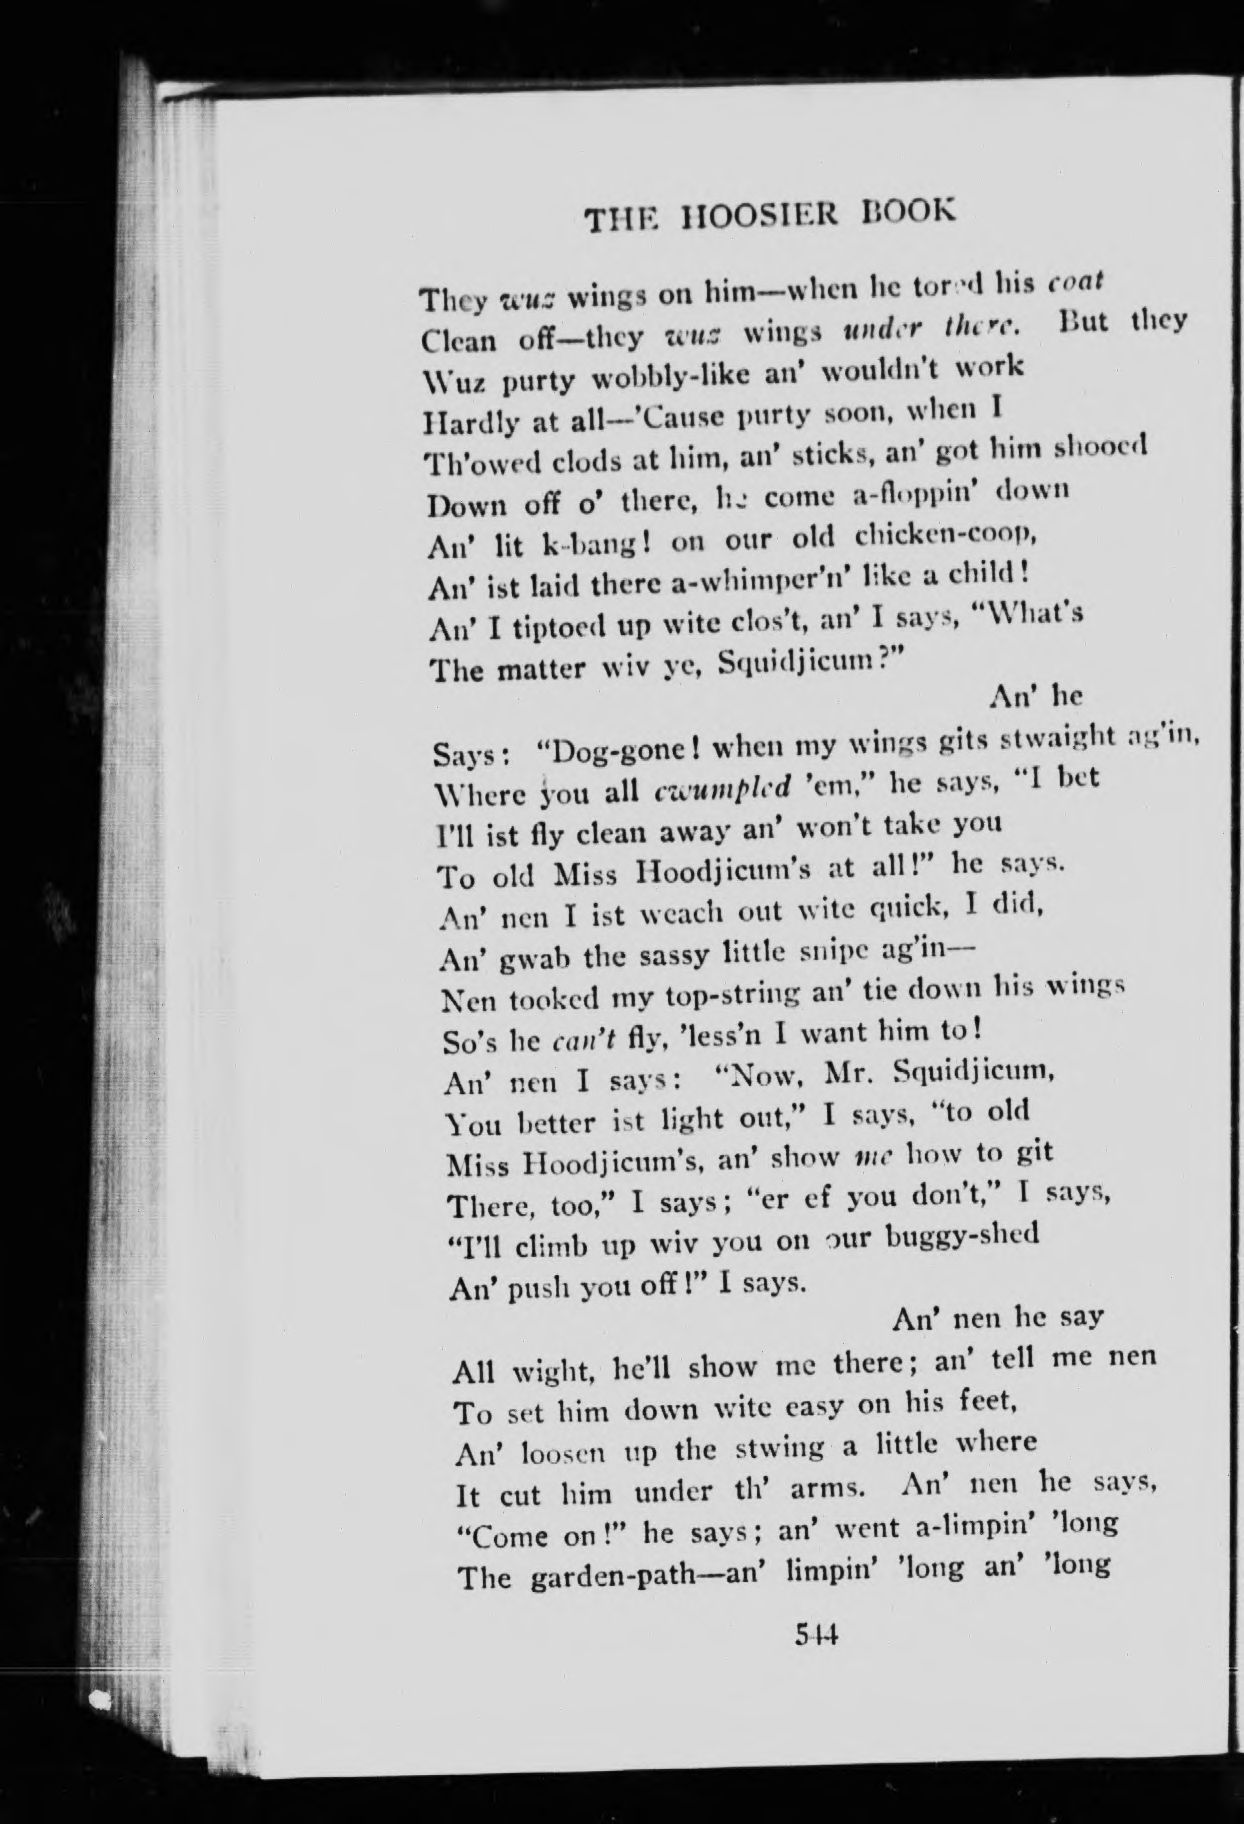 THE HOOSIER BOOK
They wuz wings on him—when he tored his coat
Clean off—they wuz wings under there. But they
Wuz purty wobbly-like an' wouldn't work
Hardly at all—'Cause purty soon, when I
Th'owed clods at him, an' sticks, an' got him shooed
Down off o' there, he come a-floppin' down
An' lit k-bang! on our old chicken-coop,
An' ist laid there a-whimper'n' like a child!
An' I tiptoed up wite clos't, an' I says, "What's
The matter wiv ye, Squidjicum?"
An' he
Says: "Dog-gone! when my wings gits stwaight ag'in,
Where you all cwumpled 'em," he says, "I bet
I'll ist fly clean away an' won't take you
To old Miss Hoodjicum's at all!" he says.
An' nen I ist weach out wite quick, I did,
An' gwab the sassy little snipe ag'in—
Nen tooked my top-string an' tie down his wings
So's he can't fly, 'less'n I want him to!
An' nen I says: "Now, Mr. Squidjicum,
You better ist light out," I says, "to old
Miss Hoodjicum's, an' show me how to git
There, too," I says; "er ef you don't," I says,
"I'll climb up wiv you on our buggy-shed
An' push you off!" I says.
An' nen he say
All wight, he'll show me there; an' tell me nen
To set him down wite easy on his feet,
An' loosen up the stwing a little where
It cut him under th' arms. An' nen he says,
"Come on!" he says; an' went a-limpin' 'long
The garden-path—an' limpin' 'long an' 'long
544